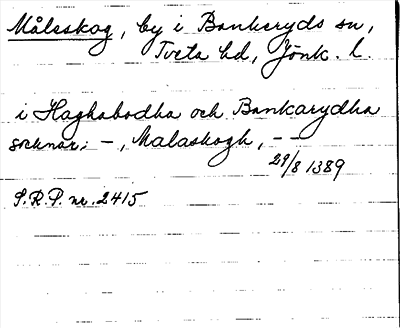 Målaskog, by i Bankeryds sn,
Tveta hd, Jönk. l.
i Haghabodha och Bankarydha
socknar: –, Malaskogh, – –
29/8 1389
S.R.P. nr. 2415